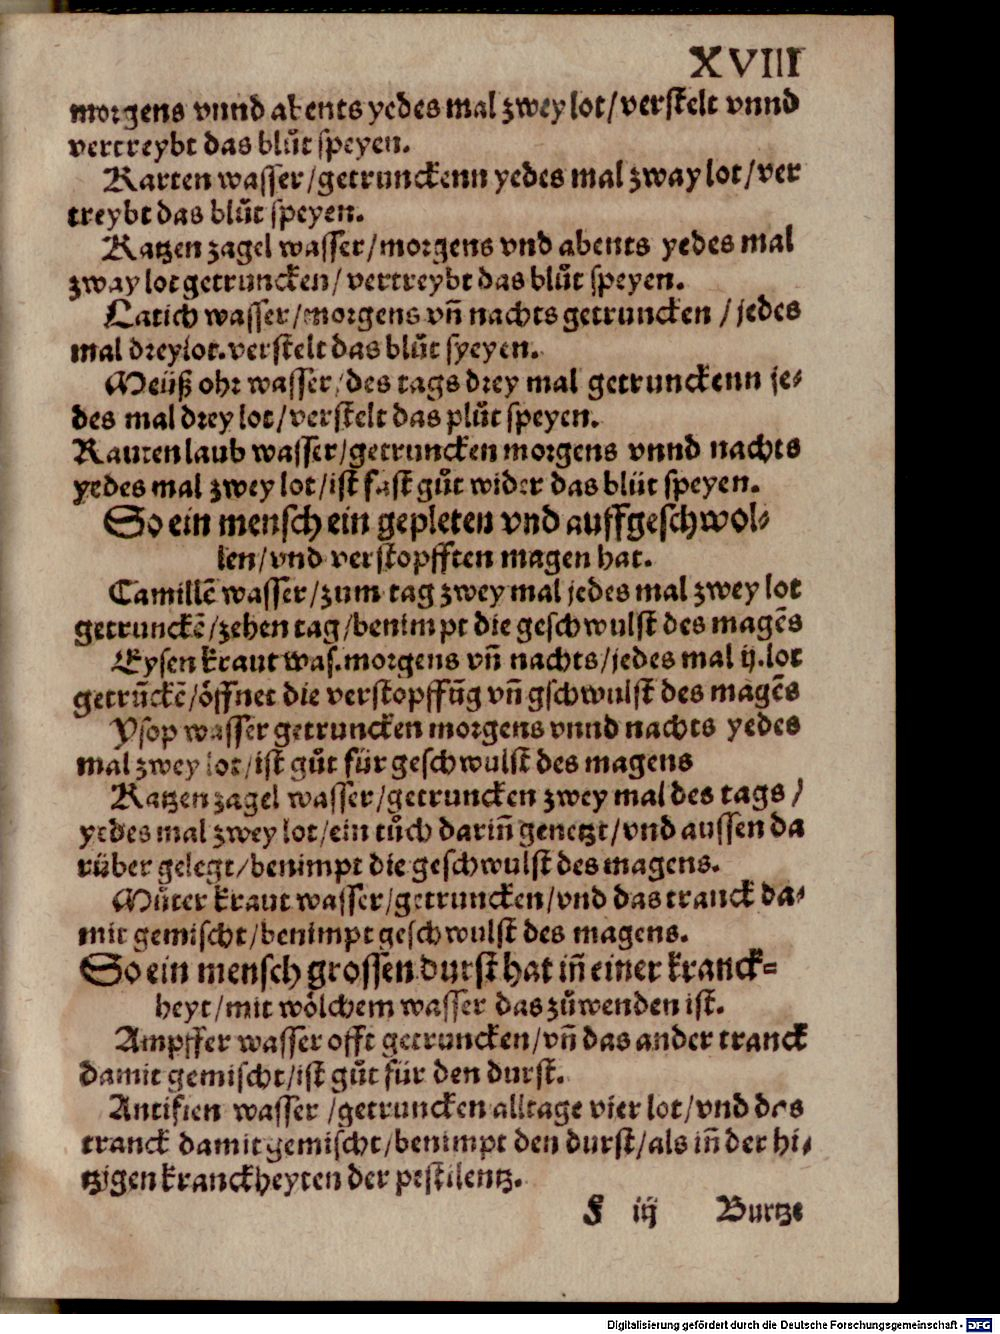 XVIII
morgens vnnd abents yedes mal zwey lot/verstelt vnnd
vertreybt das blůt speyen.
Karten wasser/getrunckenn yedes mal zway lot/ver
treybt das blůt speyen.
Katzen zagel wasser/morgens vnd abents yedes mal
zway lot getruncken/vertreybt das blůt speyen.
Latich wasser/morgens vñ nachts getruncken/jedes
mal dreylot.verstelt das blůt syeyen.
Meüß ohr wasser/des tags drey mal getrunckenn je⸗
des mal drey lot/verstelt das plůt speyen.
Rautenlaub wasser/getruncken morgens vnnd nachts
yedes mal zwey lot/ist fast gůt wider das blüt speyen.
So ein mensch ein gepleten vnd auffgeschwol⸗
len/vnd verstopfften magen hat.
Camillẽ wasser/zum tag zwey mal jedes mal zwey lot
getrunckẽ/zehen tag/benimpt die geschwulst des magẽs
Eysen kraut was.morgens vñ nachts/jedes mal ij.lot
getrũckẽ/öffnet die verstopffũg vñ gschwulst des magẽs
Ysop wasser getruncken morgens vnnd nachts yedes
mal zwey lot/ist gůt für geschwulst des magens
Katzen zagel wasser/getruncken zwey mal des tags/
yedes mal zwey lot/ein tůch dariñ genetzt/vnd aussen da
rüber gelegt/benimpt die geschwulst des magens.
Můter kraut wasser/getruncken/vnd das tranck da⸗
mit gemischt/benimpt geschwulst des magens.
So ein mensch grossen durst hat iñ einer kranck⸗
heyt/mit wölchem wasser das zůwenden ist.
Ampffer wasser offt getruncken/vñ das ander tranck
damit gemischt/ist gůt für den durst.
Antifien wasser/getruncken alltage vier lot/vnd das
tranck damit gemischt/benimpt den durst/als iñ der hi⸗
tzigen kranckheyten der pestilentz.
F iij Burtze
Digitalisierung gefördert durch die Deutsche Forschungsgemeinschaft - DFG